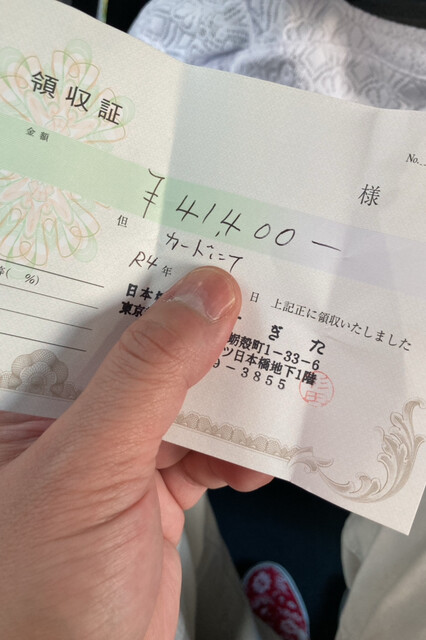 領収証
No.
金額
様
¥41,400—
但
カードにて
R4年
日 上記正に領収いたしました
(　%)
日本橋
ぎた
東京
蛎殻町1-33-6
ツ日本橋地下1階
9-3855